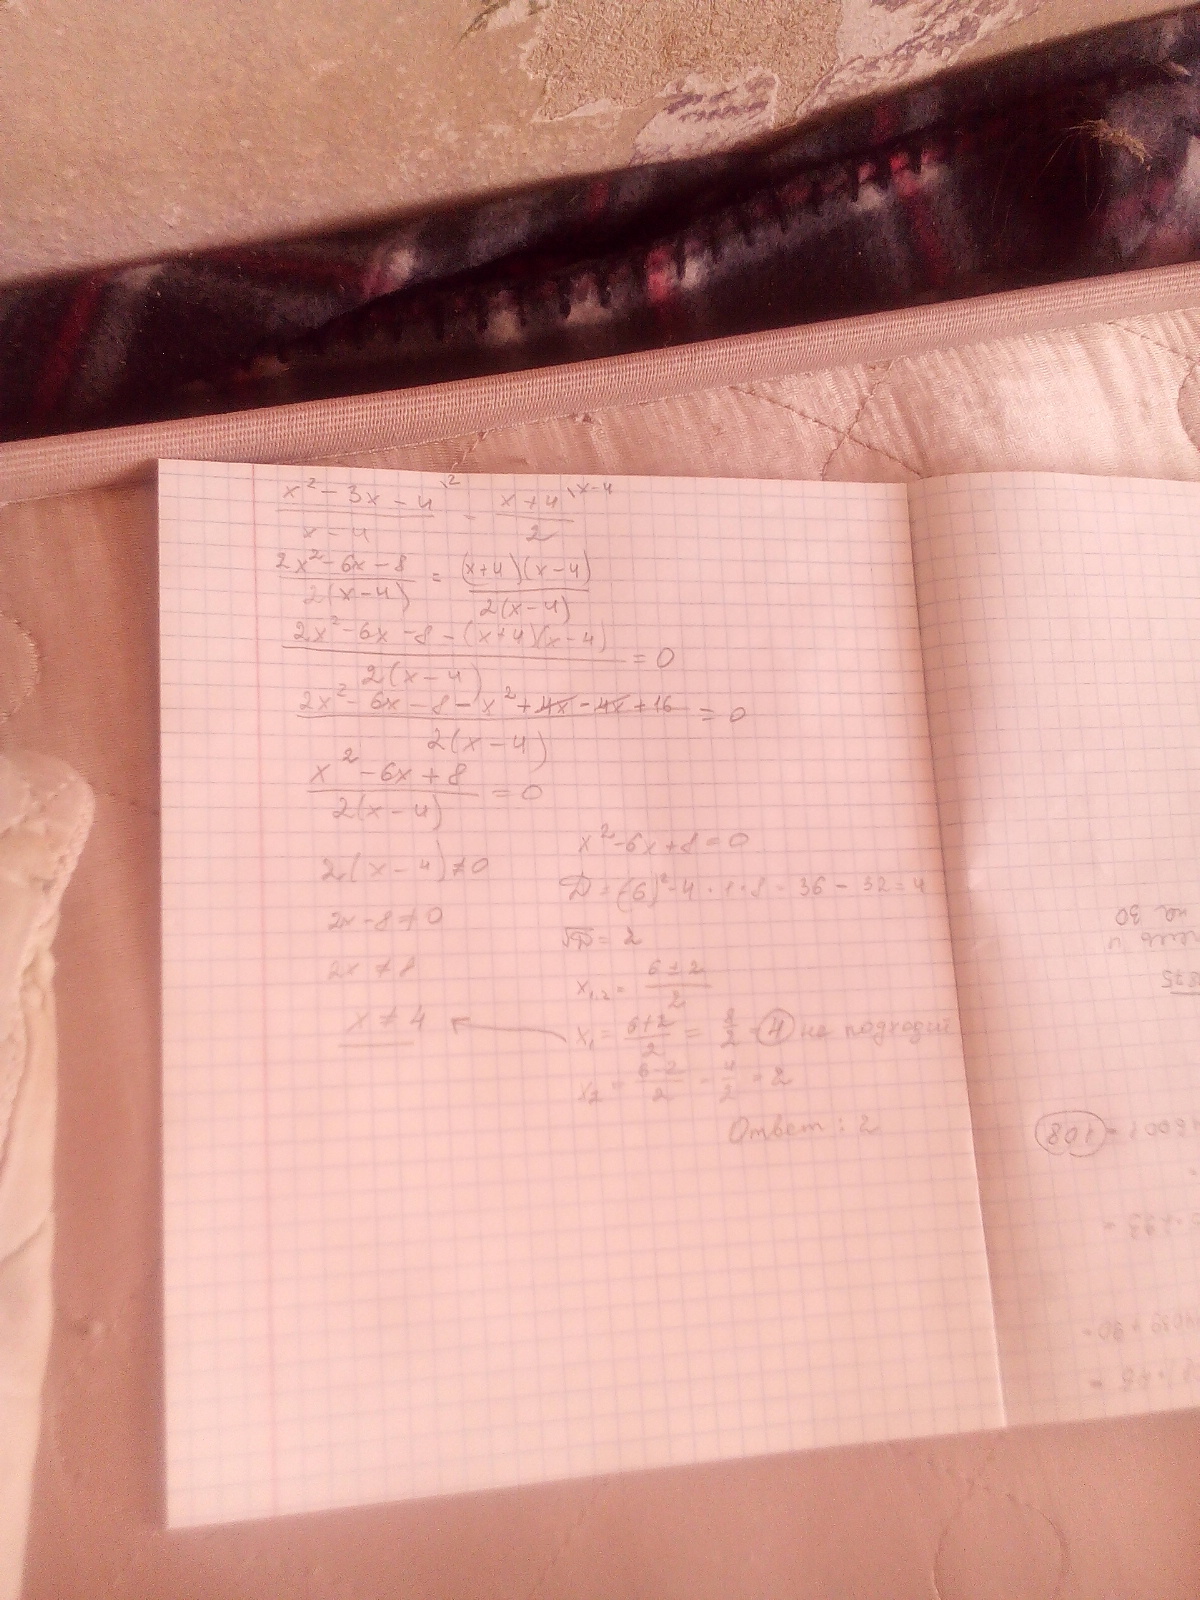 x² - 3x - 4 \2 / x - 4 = x + 4 \x-4 / 2
2x² - 6x - 8 / 2(x - 4) = (x+4)(x-4) / 2(x-4)
2x² - 6x - 8 - (x+4)(x-4) / 2(x-4) = 0
2x² - 6x - 8 - x² + 4x - 4x + 16 / 2(x-4) = 0
x² - 6x + 8 / 2(x-4) = 0
2(x-4) ≠ 0
2x - 8 ≠ 0
2x ≠ 8
x ≠ 4
x² - 6x + 8 = 0
D = (6)² - 4 · 1 · 8 = 36 - 32 = 4
√D = 2
x₁,₂ = 6 ± 2 / 2
x₁ = 6+2 / 2 = 8 / 2 = 4 не подходит
x₂ = 6-2 / 2 = 4 / 2 = 2
Ответ: 2
на 30
108